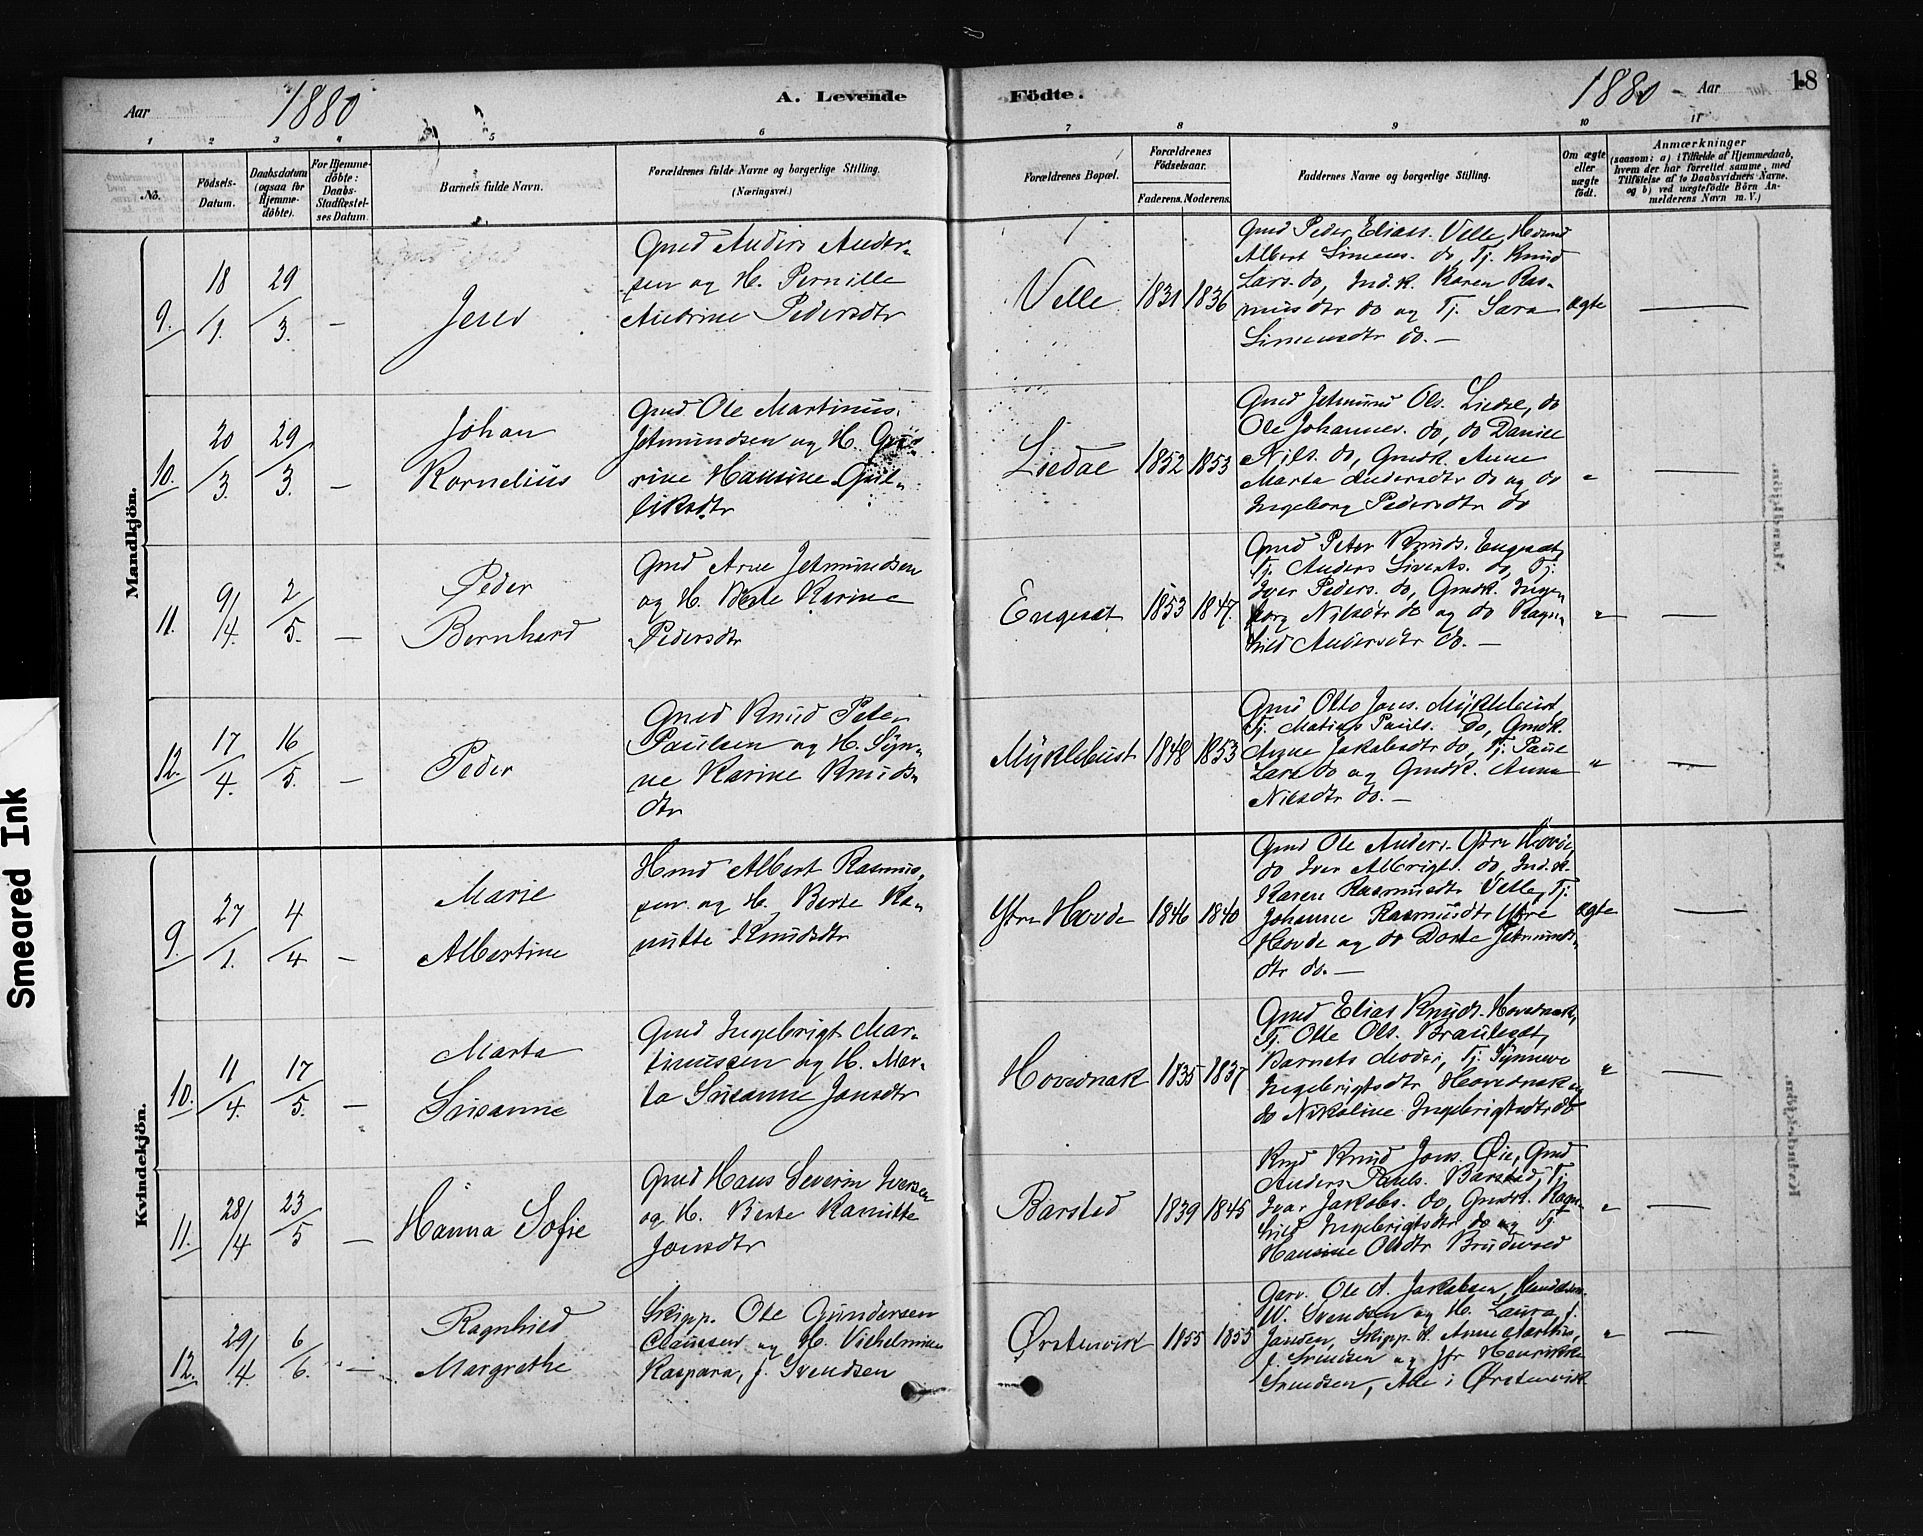 Aar 1880
A. Levende Födte.
1880 Aar 18
1 2 3 4 5 6 7 8 9 10 11
No.
Födsels-Datum.
Daabsdatum (ogsaa for Hjemmedöbte).
For Hjemmedöbte: Daabs-Stadfæstelses Datum.
Barnets fulde Navn.
Forældrenes fulde Navne og borgerlige Stilling. (Næringsvei.)
Forældrenes Bopæl.
Forældrenes Födselsaar.
Faderens. Moderens.
Faddernes Navne og borgerlige Stilling.
Om ægte eller uægte födt.
Anmærkninger
(saasom: a) i Tilfælde af Hjemmedaab, hvem der har forrettet samme, med Tilföielse af to Daabsvidners Navne, og b) ved uægtefödte Börn Anmelderens Navn m. V.)
Mandkjön.
9. 18/1. 29/3. —
Jens
Gmd Anders Ander-
sen og H. Pernille
Andrine Pedersdtr
Velle 1831 1836
Gmd Peder Eliass. Velle, Hmd
Albert Simens. do, Tj. Knud
Lars. do, Ind.k. Karen Ras-
musdtr do og Tj. Sara
Simensdtr do. —
ægte —
10. 20/3. 29/3. —
Johan
Kornelius
Gmd Ole Martinus
Jetmundsen og H.
rine Hansine Gul-
liksdtr
Liedal 1852 1853
Gmd Jetmund Ols. Liedal, do
Ole Johannes. do, do Daniel
Nils. do, Gmdk. Anne
Marta Andersdtr do og do
Ingeborg Pedersdtr do
" —
11. 9/4. 2/5. —
Peder
Bernhard
Gmd Arne Jetmundsen
og H. Berte Karine
Pedersdtr
Engeset 1853 1847.
Gmd Peter Knuds. Engeset,
Tj. Anders Siverts. do, Tj.
Iver Peders. do, Gmdk. Inge-
borg Nilsdtr do og do Ragn-
hild Andersdtr do. —
" —
12. 17/4. 16/5. —
Peder
Gmd Knud Peter
Paulsen og H. Syn-
ve Karine Knuds-
dtr
Myklebust 1848 1853
Gmd Otto Jons. Myklebust,
Tj. Matias Pauls. Do, Gmdk.
Anne Jakobsdtr do, Tj. Paul
Lars. do og Gmdk. Anne
Nilsdtr do. —
" —
Kvindekjön.
9. 27/1. 4/4 —
Marie
Albertine
Hmd Albert Rasmus-
sen og H. Berte Ka-
nutte Knudsdtr
Ytre Hovde 1846 1840
Gmd Ole Anders. Ytre Hovde,
do Iver Albrigts. do, Ind.k.
Karen Rasmusdtr Velle, Tj.
Johanne Rasmusdtr Ytre
Hovde og do Dorte Jetmunds-
dtr do. —
ægte —
10. 11/4. 17/5. —
Marta
Susanne
Gmd Ingebrigt Mar-
tinussen og H. Mar-
ta Susanne Jonsdtr
Hovednak 1835 1837
Gmd Elias Knuds. Hovednak,
Tj. Ole Ols. Brauteset,
Barnets Moder, Tj. Synneve
Ingebrigtsdtr Hovednak og
do Nikoline Ingebrigtsdtr do
" —
11. 28/4 23/5 —
Hanna Sofie
Gmd Hans Severin Iversen
og H. Berte Kanutte
Jonsdtr
Barstad 1839 1845
Knud Jons. Øie, Gmd
Anders Pauls. Barstad, Tj.
Ivar Jakobs. do, Gmdk. Ragn-
hild Ingebrigtsdtr do og Tj.
Hansine Olsdtr
" —
12. 29/4. 6/6. —
Ragnhild
Margrethe
Skipp. Ole Gundersen
Claussen og H. Vilhelmine
Kaspara, f. Svendsen
Ørstenvik 1855 1855
Garv. Ole A. Jakobsen,
W. Svendsen og H. Laura f.
Jansen, Skipp.k. Anne
f. Svendsen og Jfr Henrikke
Svendsen, Alle i Ørstenvik
" —
Smeared Ink